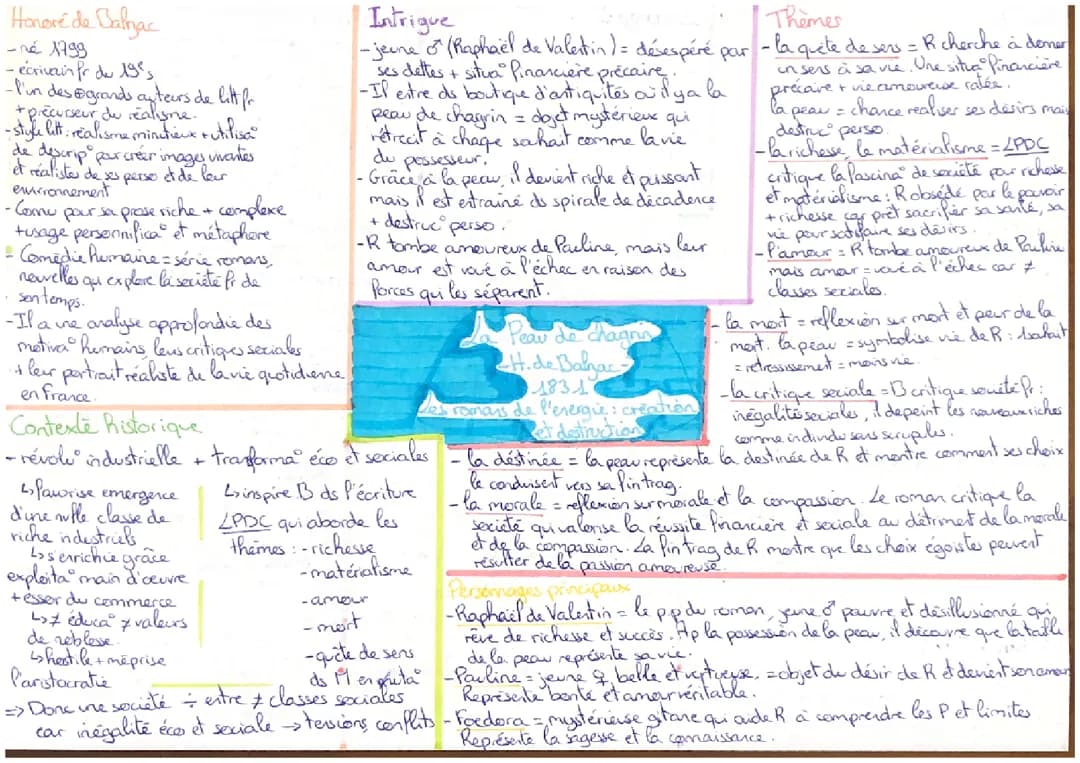 Honoré de Balzac
- né 1799
- écrivain fr du 19e s
- l'un des + grands auteurs de litt fr
+ précurseur du réalisme.
- style litt : réalisme minutieux + utilisa°
de descrip° pour créer images vivantes
et réalistes de ses perso et de leur
environnement
- Connu pour sa prose riche + complexe
+ usage personnifica° et métaphore
- Comédie humaine = série romans,
nouvelles qui explore la société fr de
son temps.
- Il a une analyse approfondie des
motiva° humains, leurs critiques sociales
+ leur portrait réaliste de la vie quotidienne
en France.
Contexte historique
- révolu° industrielle + transforma° éco et sociales
↳ favorise emergence
d'une nvlle classe de
riche industriels
↳ s'enrichie grâce
exploita° main d'œuvre
+ essor du commerce
↳ ≠ éduca° ≠ valeurs
de noblesse.
↳ hostile + méprise
l'aristocratie
↳ inspire B ds l'écriture
LPDC qui aborde les
thèmes : - richesse
- matérialisme
- amour
- mort
- quête de sens
ds M en muta°
=> Donc une société ÷ entre ≠ classes sociales
car inégalité éco et sociale → tensions, conflits
Intrigue
- jeune ♂ (Raphaël de Valentin) = désespéré par
ses dettes + situa° financière précaire.
- Il entre ds boutique d'antiquités où il y a la
peau de chagrin = objet mystérieux qui
rétrécit à chaque souhait comme la vie
du possesseur.
- Grâce à la peau, il devient riche et puissant
mais il est entrainé ds spirale de décadence
+ destruc° perso.
- R tombe amoureux de Pauline, mais leur
amour est voué à l'échec en raison des
forces qui les séparent.
La Peau de chagrin
- H. de Balzac -
1831
Les romans de l'énergie : création
et destruction
Thèmes
- la quête de sens = R cherche à donner
un sens à sa vie. Une situa° financière
précaire + vie amoureuse ratée.
la peau = chance realiser ses désirs mais
destruc° perso.
- la richesse, le matérialisme = LPDC
critique la fascina° de société pour richesse
et matérialisme : R obsédé par le pouvoir
+ richesse car prêt sacrifier sa santé, sa
vie pour satisfaire ses désirs.
- l'amour = R tombe amoureux de Pauline
mais amour = voué à l'échec car ≠
classes sociales.
- la mort = réflexion sur mort et peur de la
mort. la peau = symbolise vie de R : 1 souhait
= rétrécissement = moins vie.
- la critique sociale = B critique société fr :
inégalités sociales, il depeint les nouveaux riches
comme individu sans scrupules.
- la déstinée = la peau représente la destinée de R et montre comment ses choix
le conduisent vers sa fin trag.
- la morale = réflexion sur morale et la compassion. Le roman critique la
société qui valorise la réussite financière et sociale au détriment de la morale
et de la compassion. La fin trag de R montre que les choix égoïstes peuvent
résulter de la passion amoureuse.
Personnages principaux
- Raphaël de Valentin = le p.p du roman, jeune ♂ pauvre et désillusionné qui
rêve de richesse et succès. Ap la possession de la peau, il découvre que la taille
de la peau représente sa vie.
- Pauline = jeune ♀ belle et vertueuse, = objet du désir de R et devient son amour
Représente bonté et amour véritable.
- Foedora = mystérieuse gitane qui aide R à comprendre les P et limites
Représente la sagesse et la connaissance.